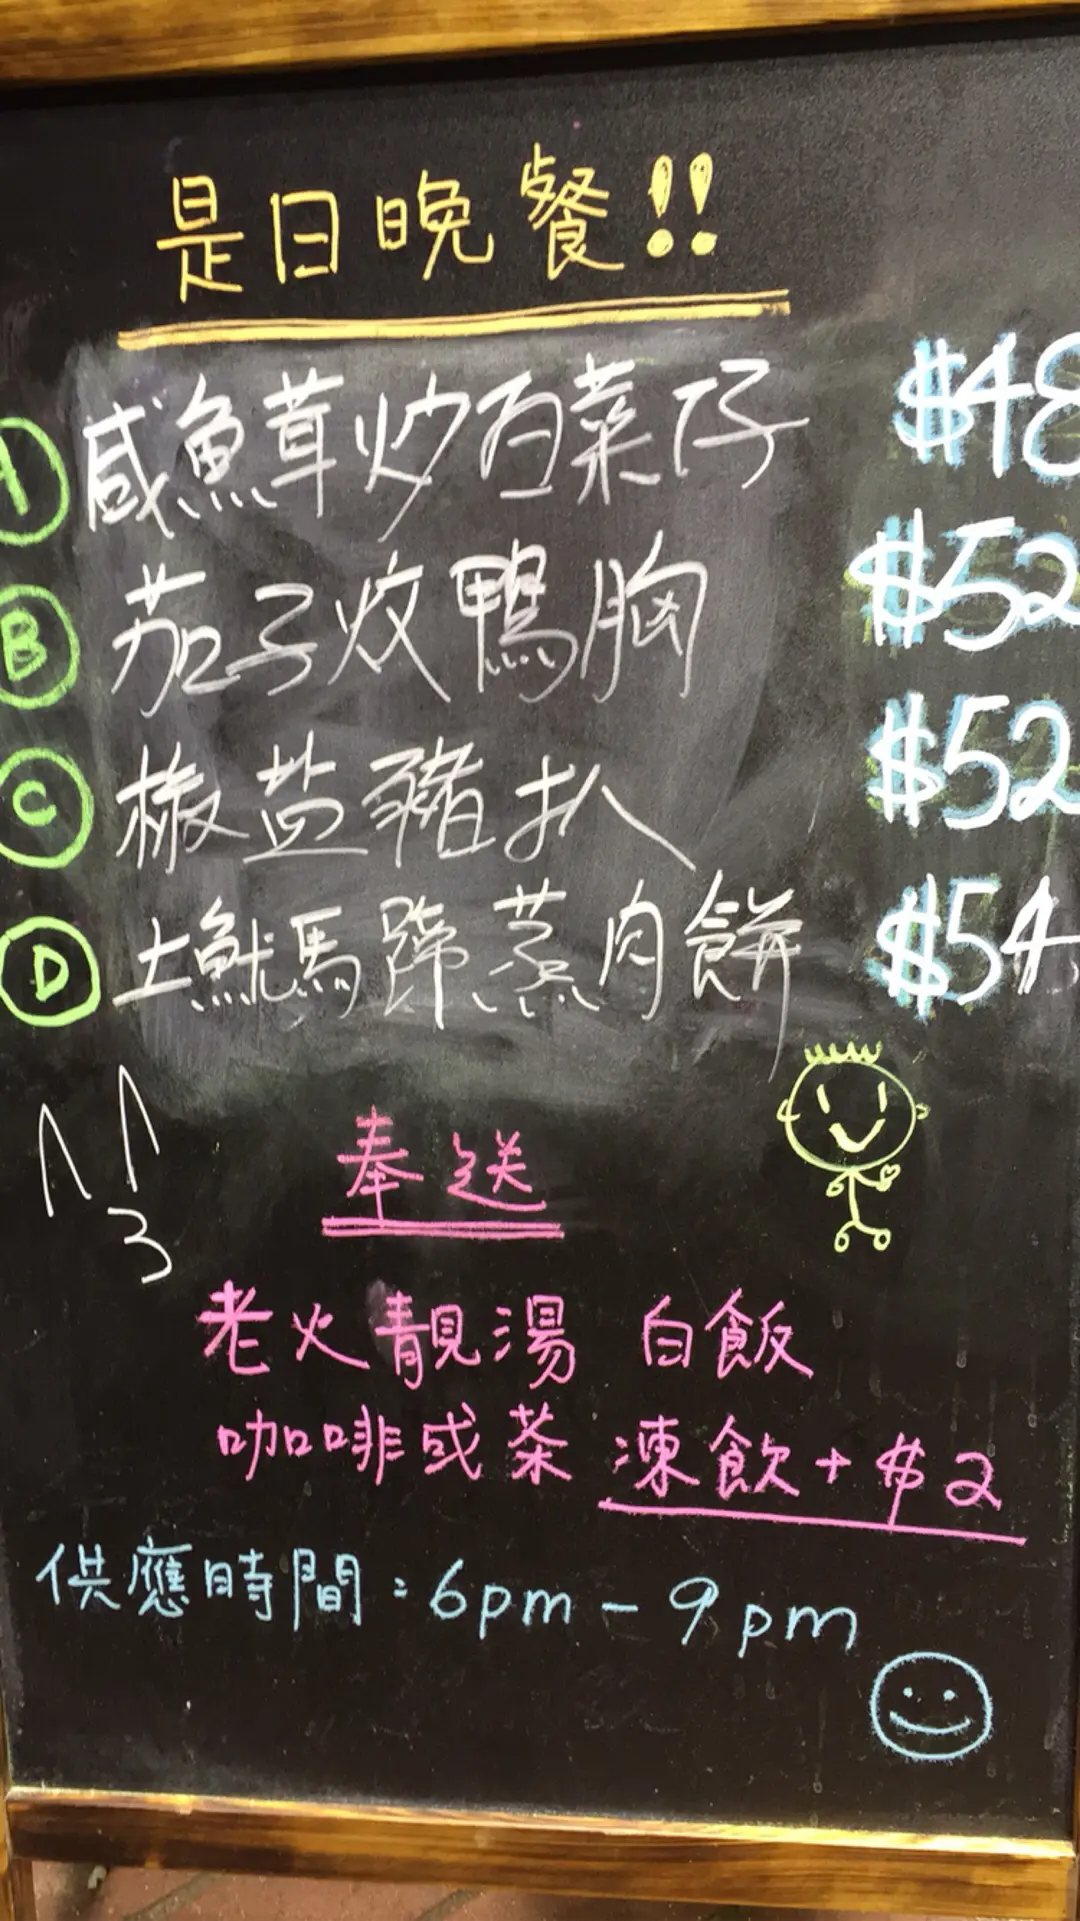 是日晚餐!!
A 咸魚茸炒白菜仔 $48
B 茄子炆鴨胸 $52
C 椒盐豬扒 $52
D 土魷馬蹄蒸肉餅 $54
奉送
老火靚湯 白飯
咖啡或茶 凍飲+$2
供應時間:6pm-9pm